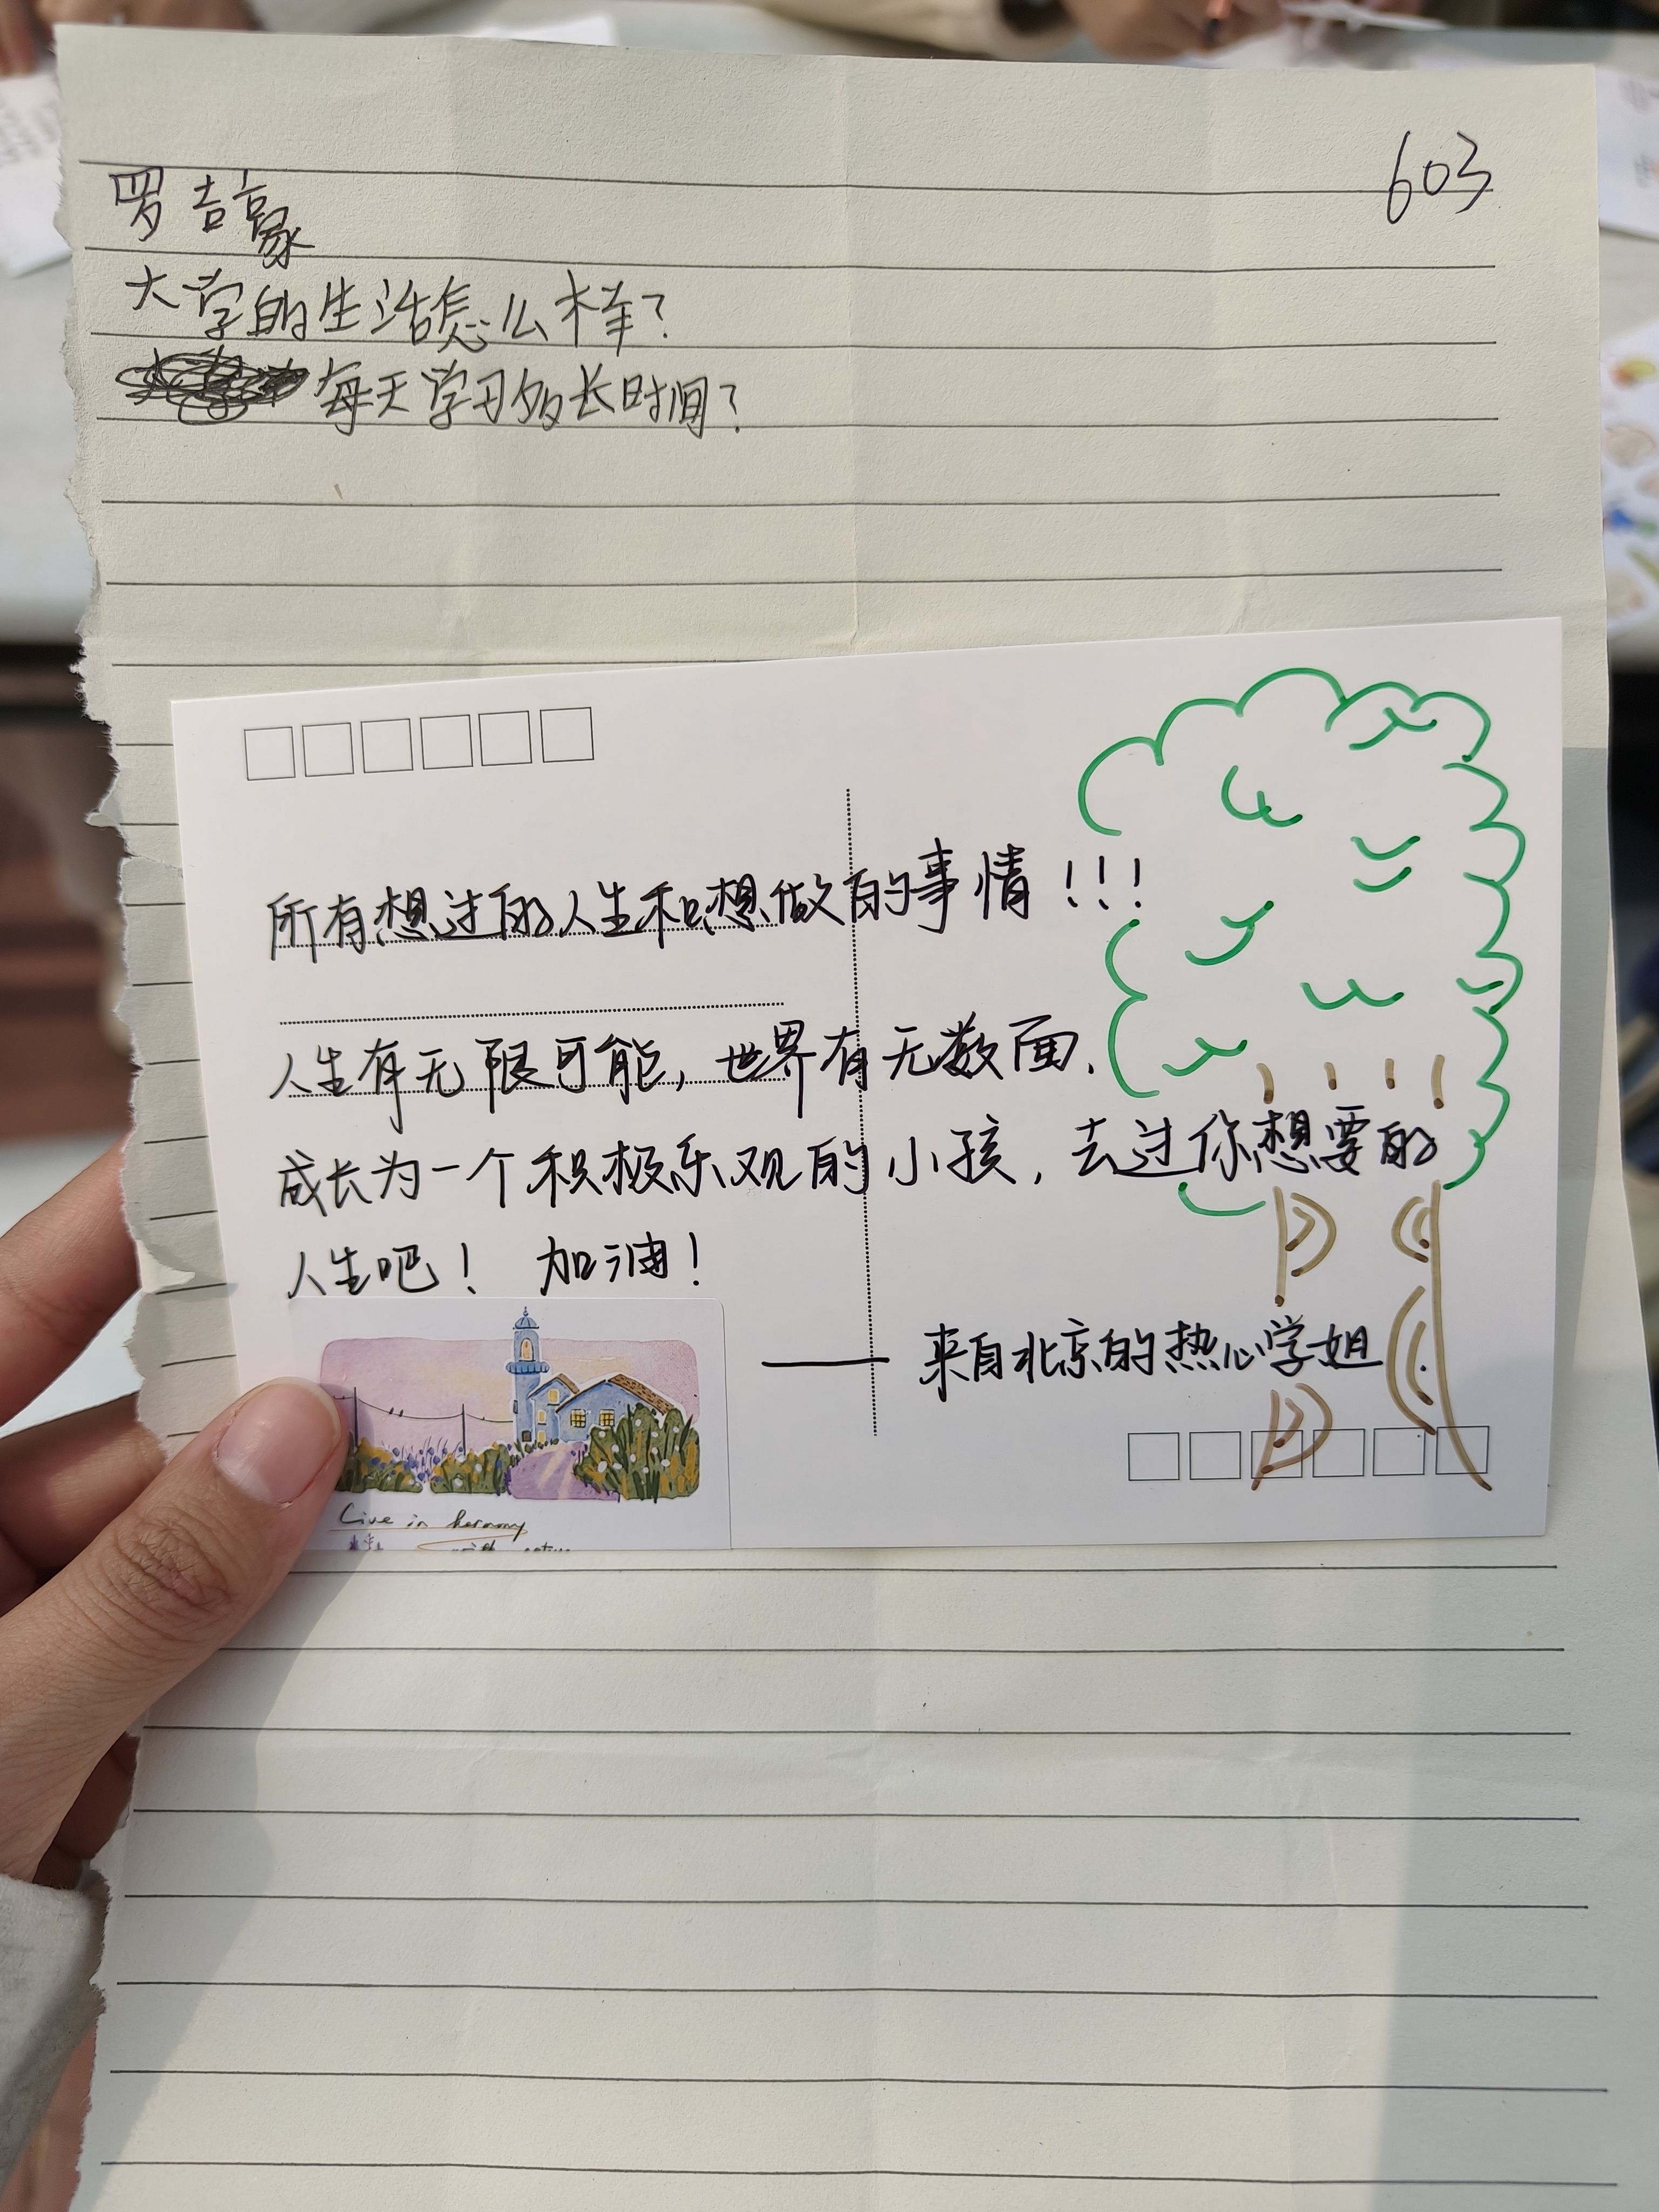 603
罗吉豪
大学的生活怎么样?
每天学习多长时间?
所有想过的人生和想做的事情!!!
人生有无限可能,世界有无数面.
成长为一个积极乐观的小孩,去过你想要的
人生吧! 加油!
—— 来自北京的热心学姐
Live in harmony